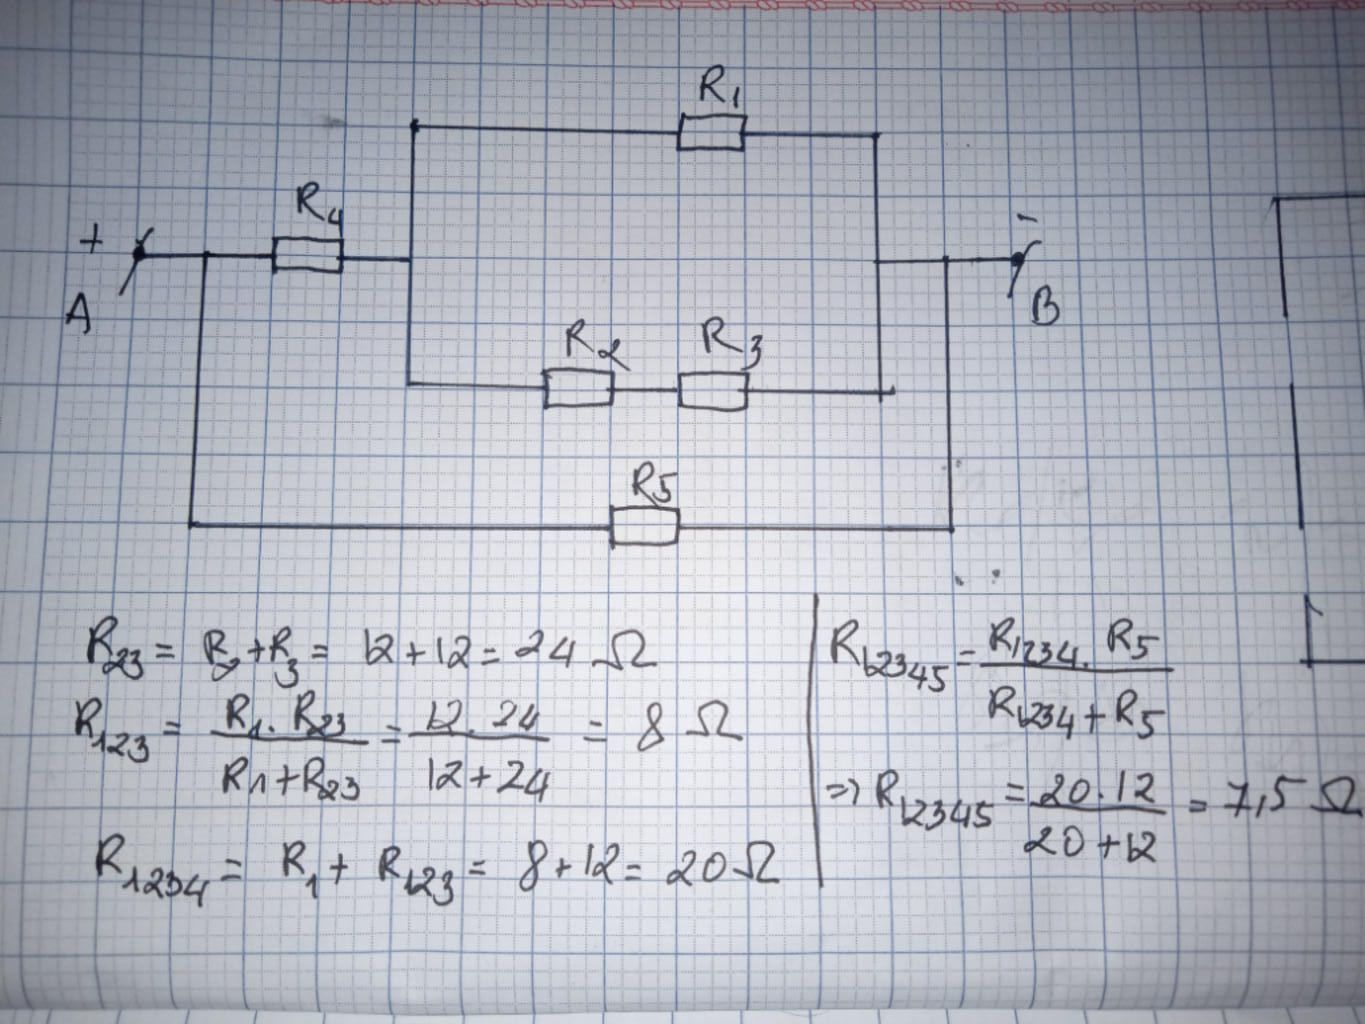 R1
R4
+
-
A
B
R2
R3
R5
R23 = R2 + R3 = 12 + 12 = 24 Ω
R123 = R1 . R23 / R1 + R23 = 12 . 24 / 12 + 24 = 8 Ω
R1234 = R1 + R123 = 8 + 12 = 20 Ω
R12345 = R1234 . R5 / R1234 + R5
=> R12345 = 20 . 12 / 20 + 12 = 7,5 Ω